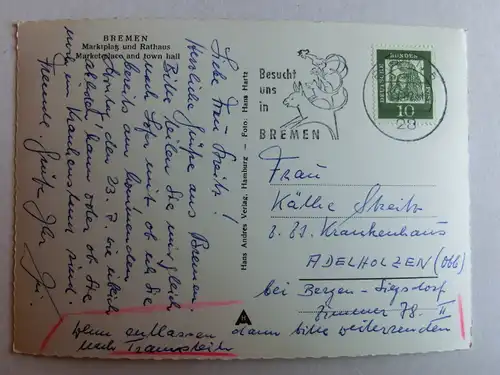 BREMEN
Marktplatz und Rathaus
Marketplace and town hall
Liebe Frau Streitz!
Herzliche Grüße aus Bremen.
Bitte teilen Sie mir gleich
nach Sofr mit ob ich Sie
bereits am kommenden
Sonntag den 23. 7. wie üblich
abholen kann oder ob Sie
noch im Krankenstand sind.
Freundl. Grüße Ihr
Hans Andres Verlag, Hamburg – Foto: Hans Hartz
Besucht
uns
in
BREMEN
DEUTSCHE BUNDESPOST
10
28
Frau
Käthe Streitz
z. Zt. Krankenhaus
ADELHOLZEN (Obb)
bei Bergen - Siegsdorf
Zimmer 78 II
wenn entlassen dann bitte weitersenden
nach Traunstein